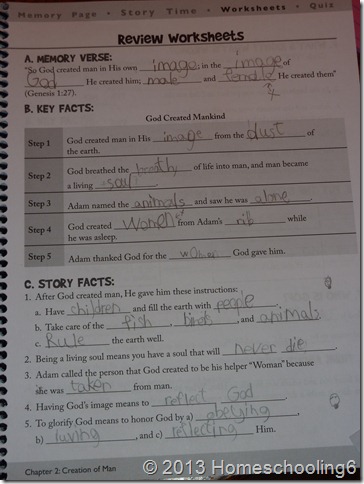 Memory Page • Story Time • Worksheets • Quiz
Review Worksheets
A. MEMORY VERSE:
"So God created man in His own image; in the image of
God He created him; male and female He created them"
(Genesis 1:27).
B. KEY FACTS:
God Created Mankind
Step 1 God created man in His image from the dust of
the earth.
Step 2 God breathed the breathy of life into man, and man became
a living soul.
Step 3 Adam named the animals and saw he was alone.
Step 4 God created women from Adam's rib while
he was asleep.
Step 5 Adam thanked God for the God gave him.
C. STORY FACTS:
1. After God created man, He gave him these instructions:
a. Have children and fill the earth with peope.
b. Take care of the fish, birds, and animals.
c. Rule the earth well.
2. Being a living soul means you have a soul that will never die.
3. Adam called the person that God created to be his helper "Woman" because
she was taken from man.
4. Having God's image means to reflect God.
5. To glorify God means to honor God by a) obeying,
b) loving, and c) reflecting Him.
Chapter 2: Creation of Man
© 2013 Homeschooling6